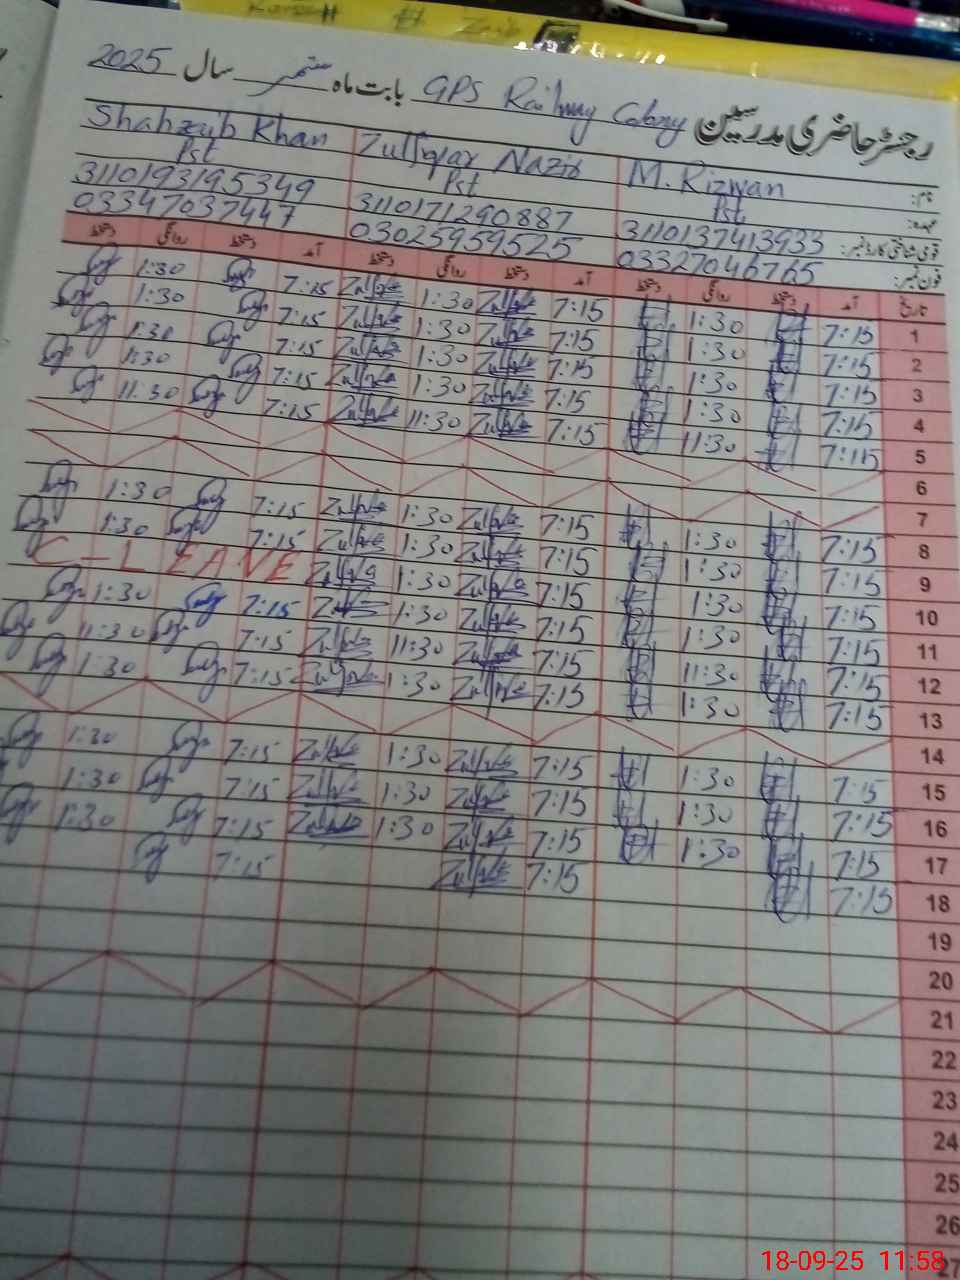 رجسٹر حاضری مدرسین GPS Railway Colony بابت ماہ ستمبر سال 2025
نام: M. Rizwan Zulfiqar Nazir Shahzaib Khan
عہدہ: Pst Pst Pst
قومی شناختی کارڈ نمبر: 3110137413933 3110171290887 3110193195349
فون نمبر: 03327046765 03025959525 03347037447
تاریخ آمد دستخط روانگی دستخط آمد دستخط روانگی دستخط آمد دستخط روانگی دستخط
1 7:15 1:30 7:15 Zulfiqar 1:30 Zulfiqar 7:15 1:30
2 7:15 1:30 7:15 Zulfiqar 1:30 Zulfiqar 7:15 1:30
3 7:15 1:30 7:15 Zulfiqar 1:30 Zulfiqar 7:15 1:30
4 7:15 1:30 7:15 Zulfiqar 1:30 Zulfiqar 7:15 1:30
5 7:15 11:30 7:15 Zulfiqar 11:30 Zulfiqar 7:15 11:30
6
7
8 7:15 1:30 7:15 Zulfiqar 1:30 Zulfiqar 7:15 1:30
9 7:15 1:30 7:15 Zulfiqar 1:30 Zulfiqar 7:15 1:30
10 7:15 1:30 7:15 Zulfiqar 1:30 Zulfiqar C-LEAVE
11 7:15 1:30 7:15 Zulfiqar 1:30 Zulfiqar 7:15 1:30
12 7:15 11:30 7:15 Zulfiqar 11:30 Zulfiqar 7:15 11:30
13 7:15 1:30 7:15 Zulfiqar 1:30 Zulfiqar 7:15 1:30
14
15 7:15 1:30 7:15 Zulfiqar 1:30 Zulfiqar 7:15 1:30
16 7:15 1:30 7:15 Zulfiqar 1:30 Zulfiqar 7:15 1:30
17 7:15 1:30 7:15 Zulfiqar 1:30 Zulfiqar 7:15 1:30
18 7:15 7:15 Zulfiqar 7:15
19
20
21
22
23
24
25
26
27
18-09-25 11:58